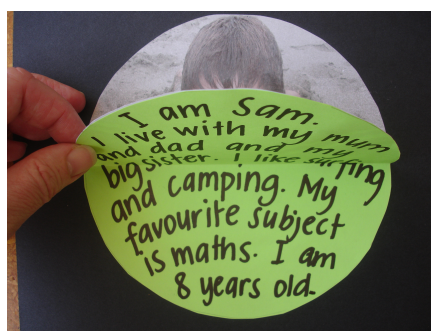 I am Sam.
I live with my mum
and dad and my
big sister. I like surfing
and camping. My
favourite subject
is maths. I am
8 years old.